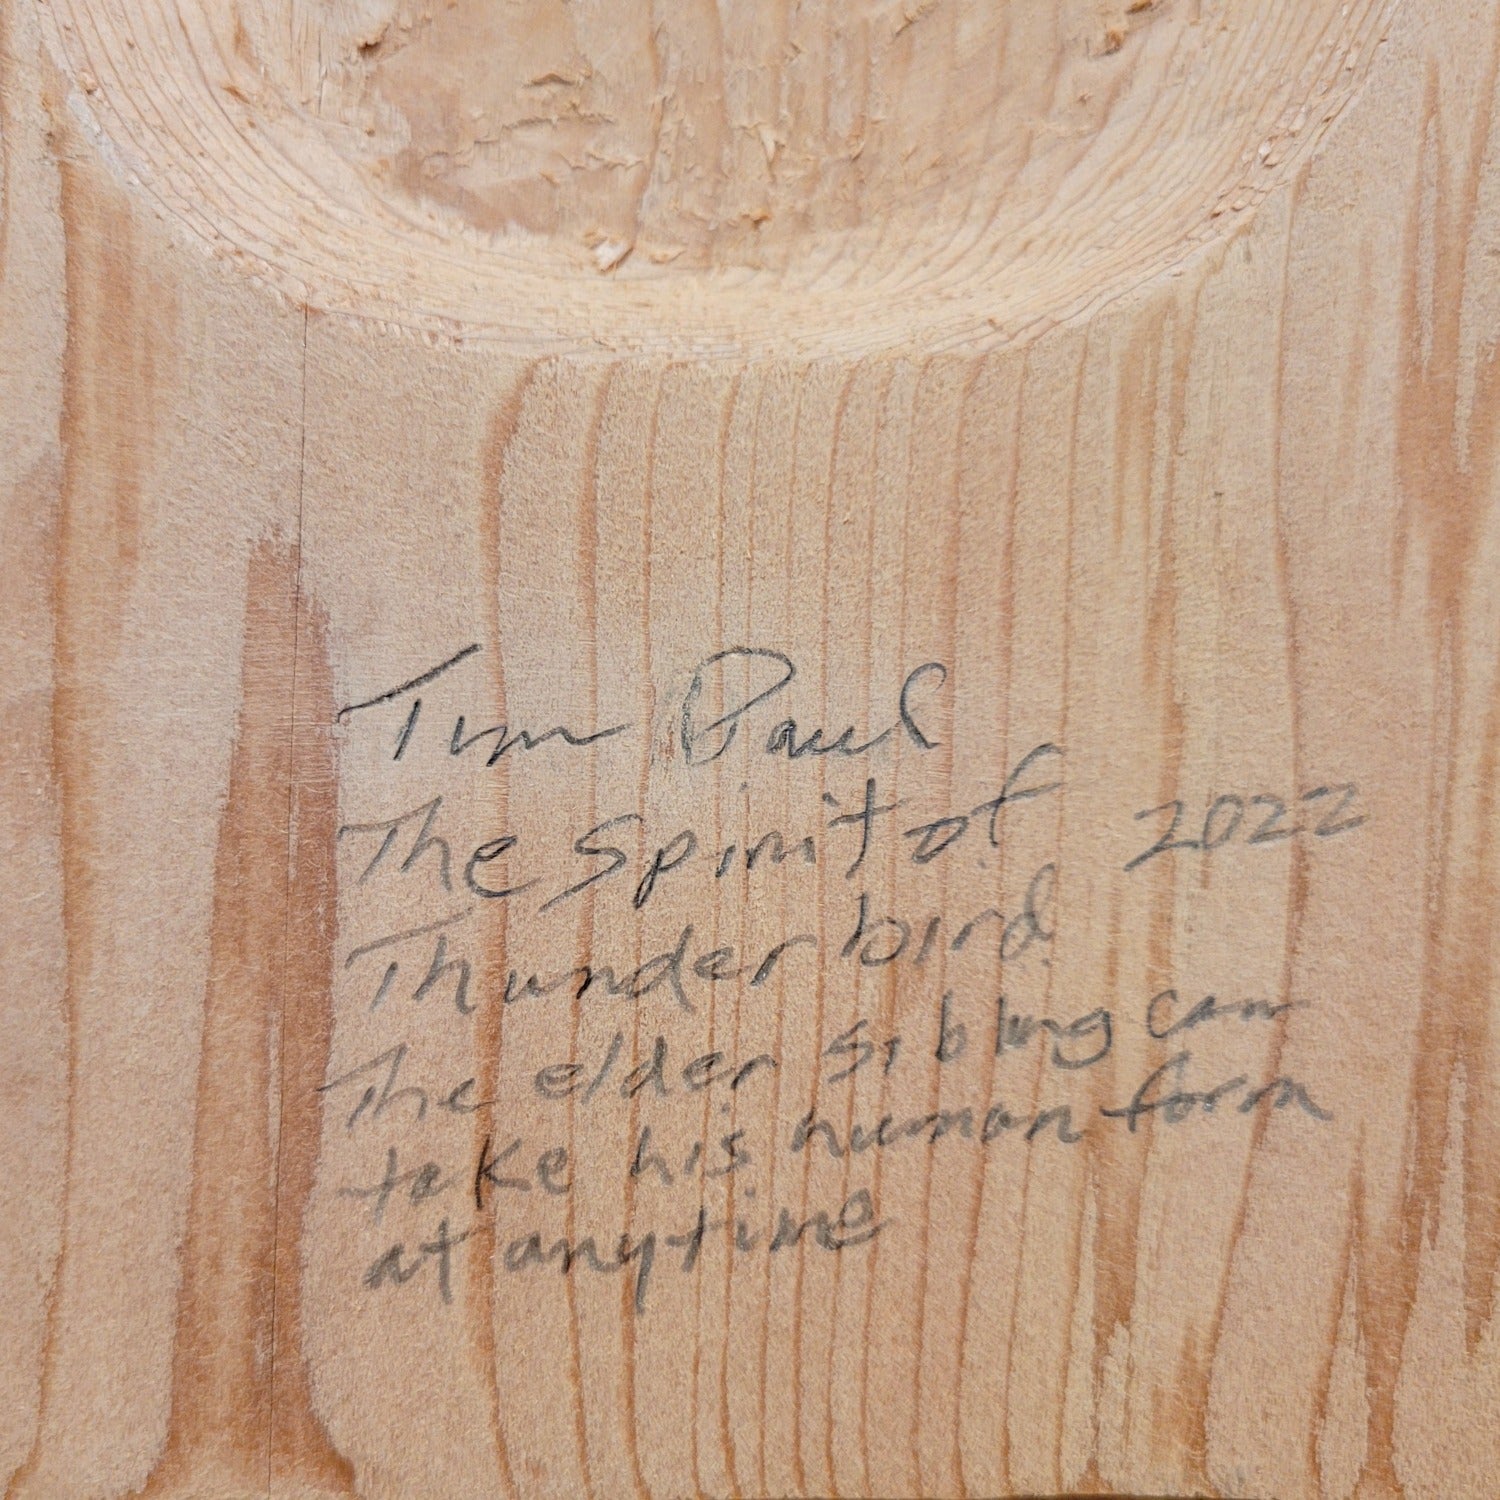 Tim Paul
The Spirit of 2022
Thunderbird
The elder sibling can
take his human form
at anytime